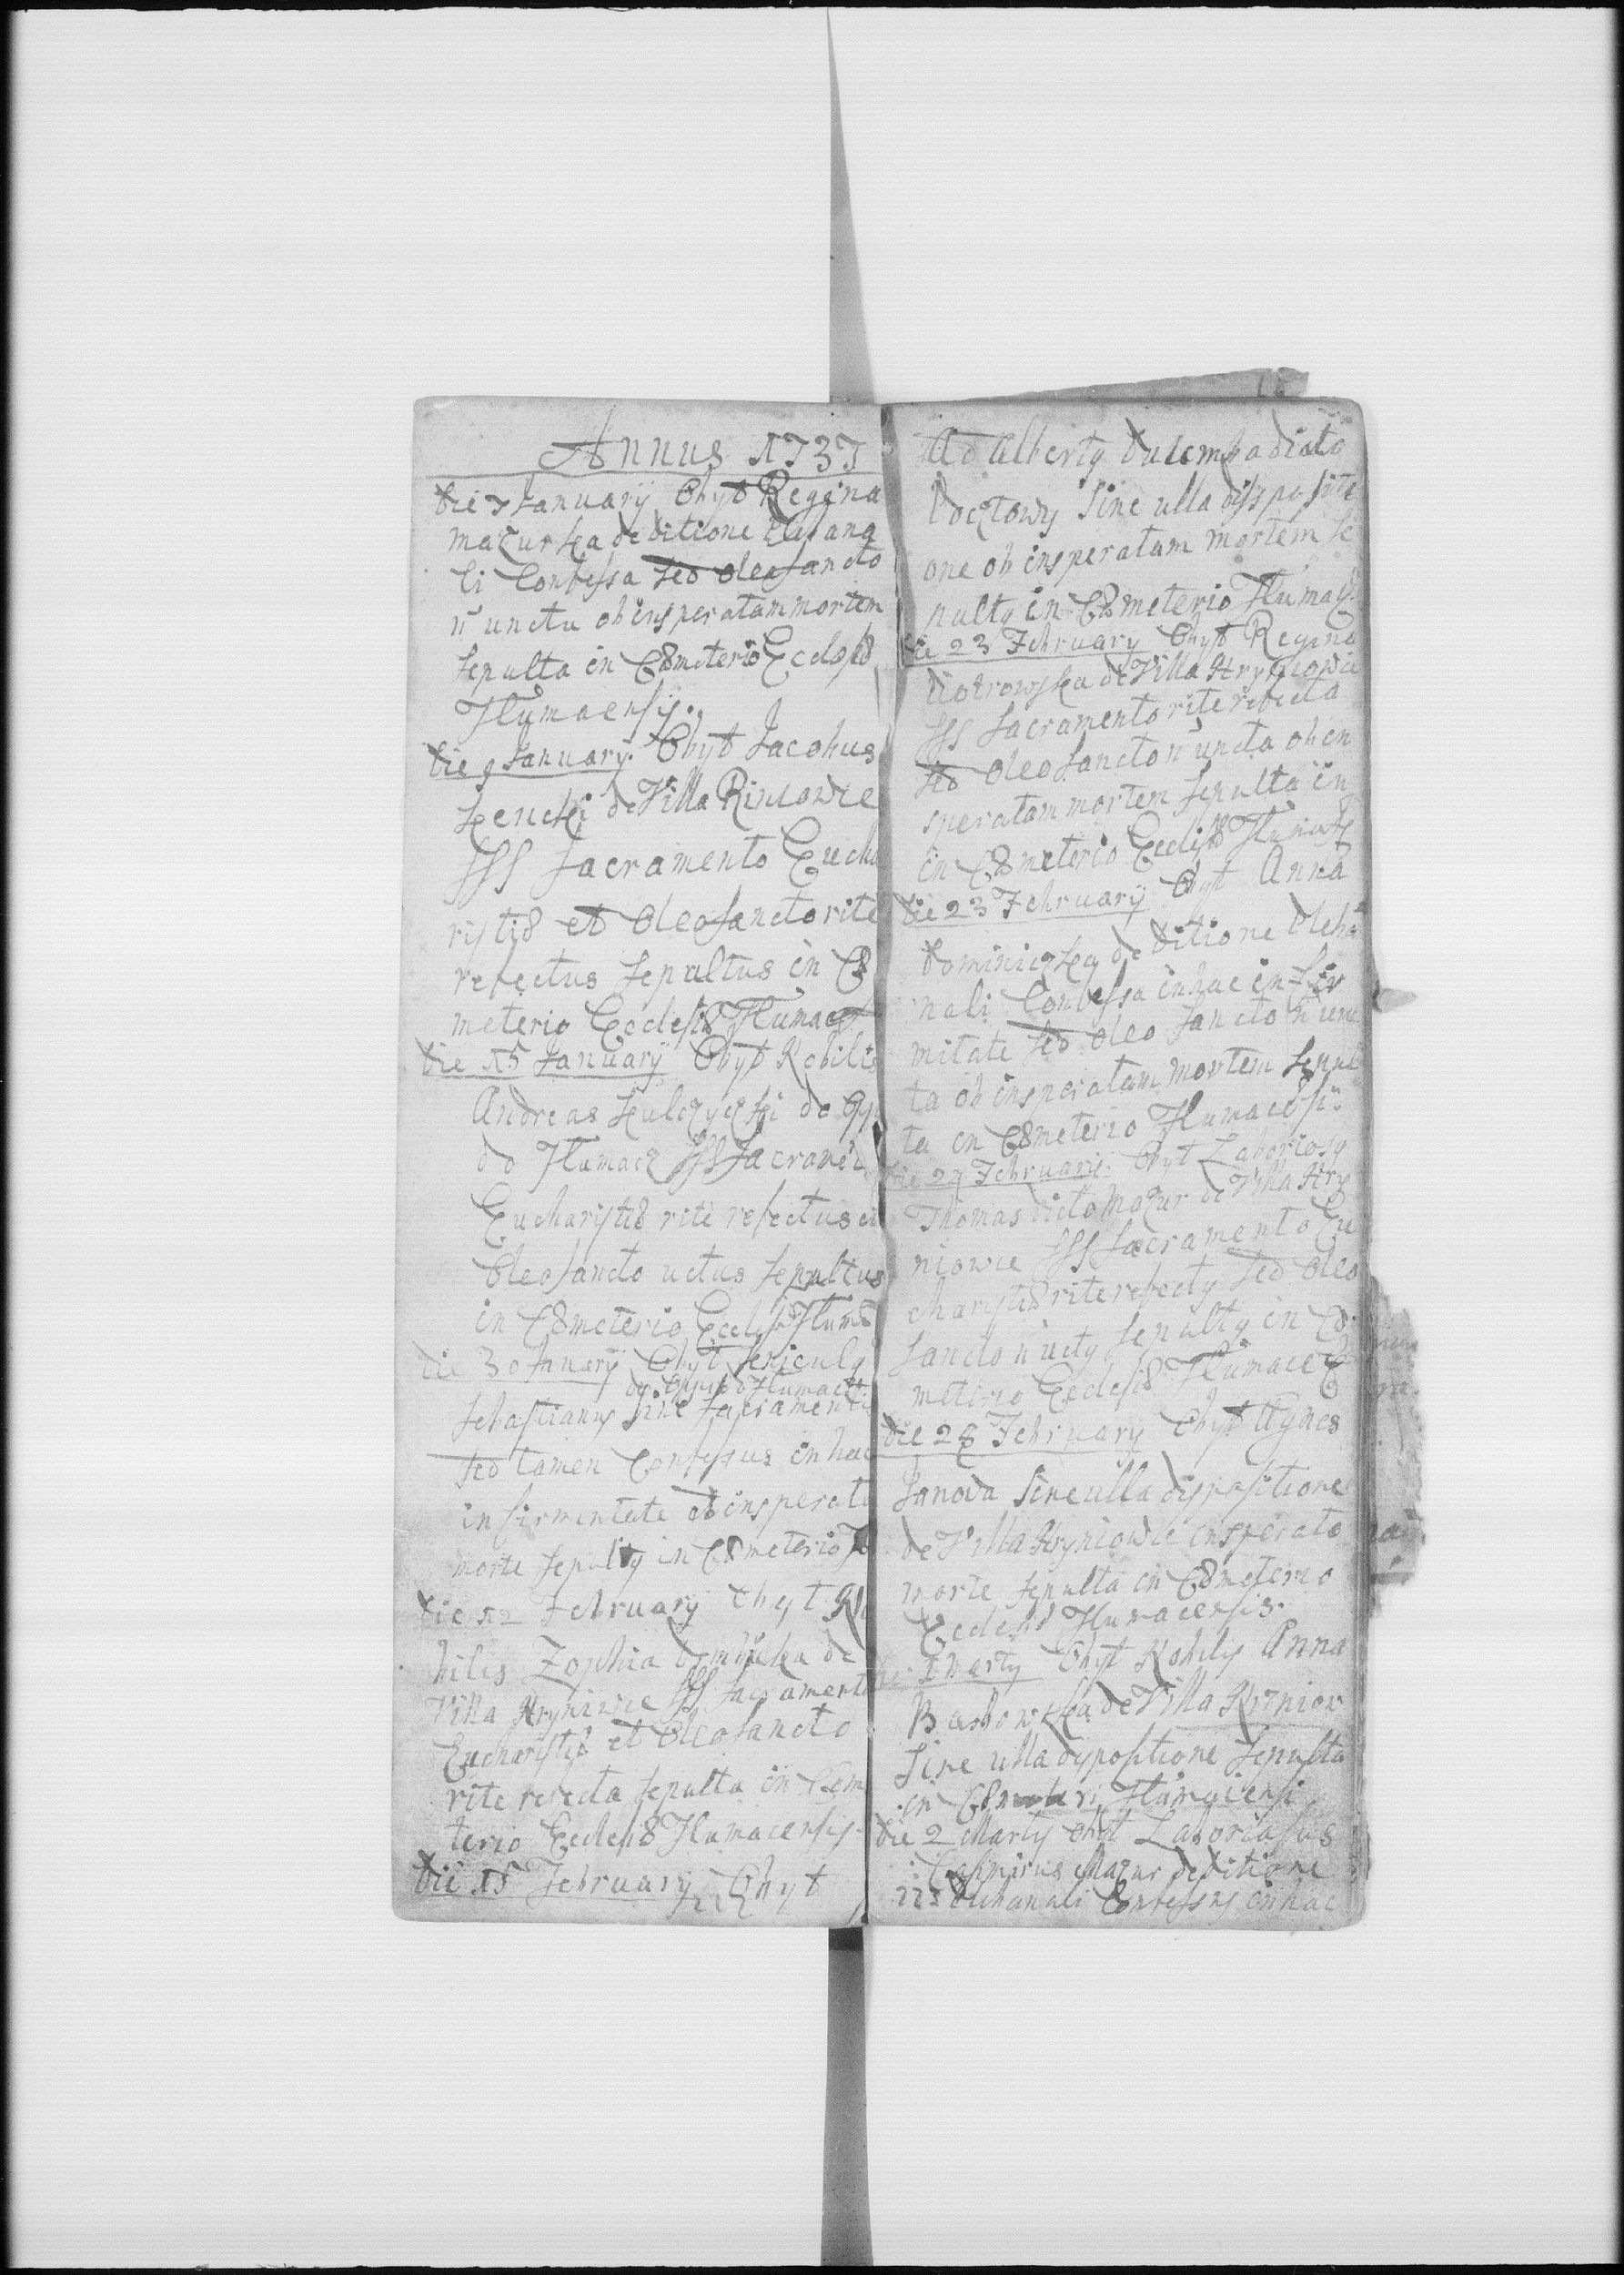 Annus 1737
Die 7 January Obyt Regina
Mazurska de ditione
li Confessa sed oleo sancto
n̄ uncta ob insperatam mortem
sepulta in Cœmeterio Ecclesiæ
Tłumacensis.
Die 9 January. Obyt Jacobus
de Villa
SSS Sacramento Eucha
ristiæ et Oleo Sancto rite
refectus sepultus in Cæ
meterio Ecclesiæ Tłumacen
Die 15 January Obyt Nobilis
Andreas Kulczycki de Opi
do Tłumacz SSS Sacramen
Eucharistiæ rite refectus et
Oleo sancto uctus sepultus
in Cæmeterio Eccles Tłumac
die 30 January Obyt
de Oppido Tłumacz
Sebastianus sine Sacramentis
sed tamen Confessus in hac
infirmitate ob insperata
morte sepultus in Cæmeterio
Die 12 February Obyt No
bilis Zophia de
Villa Hryniowce SSS Sacramento
Eucharistiæ et Oleo Sancto
rite refecta sepulta in Cæm
terio Ecclesiæ Tłumacensis.
Die 15 February Obyt
Adalbertq Dulemba dicto
Pocztowy Sine ulla disspositi
one ob insperatam mortem se
pultq in Cæmeterio Tłumacz
die 23 February Obyt Regina
Piotrowska de Villa Hryniowce
SSS Sacramento rite refecta
sed Oleo Sancto n̄ uncta ob in
speratam mortem sepulta in
in Cæmeterio Ecclesiæ Tłumacz
Die 23 February Obyt Anna
de Ditione Pleba
nali Confessa in hac infir
mitate sed Oleo Sancto n̄ unc
ta ob insperatam mortem sepul
ta in Cæmeterio Tłumacēsi
Die 24 February. Obyt Laboriosq
Thomas dicto Mazur de Villa Hry
niowce SSS Sacramento Eu
charistiæ rite refectq sed Oleo
Sancto n̄ uctq sepultq in Cæ
meterio Ecclesiæ Tłumacē
Die 28 February Obyt Agnes
Janowa Sine ulla dispositione
de Villa Hryniowce insperato
morte sepulta in Cæmeterio
Ecclesiæ Tłumacensis.
Die 1 Marty Obyt Nobilis Anna
de Villa Hryniow
Sine ulla dispositione Sepulta
in Tłumacensi
Die 2 Marty obyt Laboriosus
Casimirus Mazur de ditione
Plebanali Confessus in hac